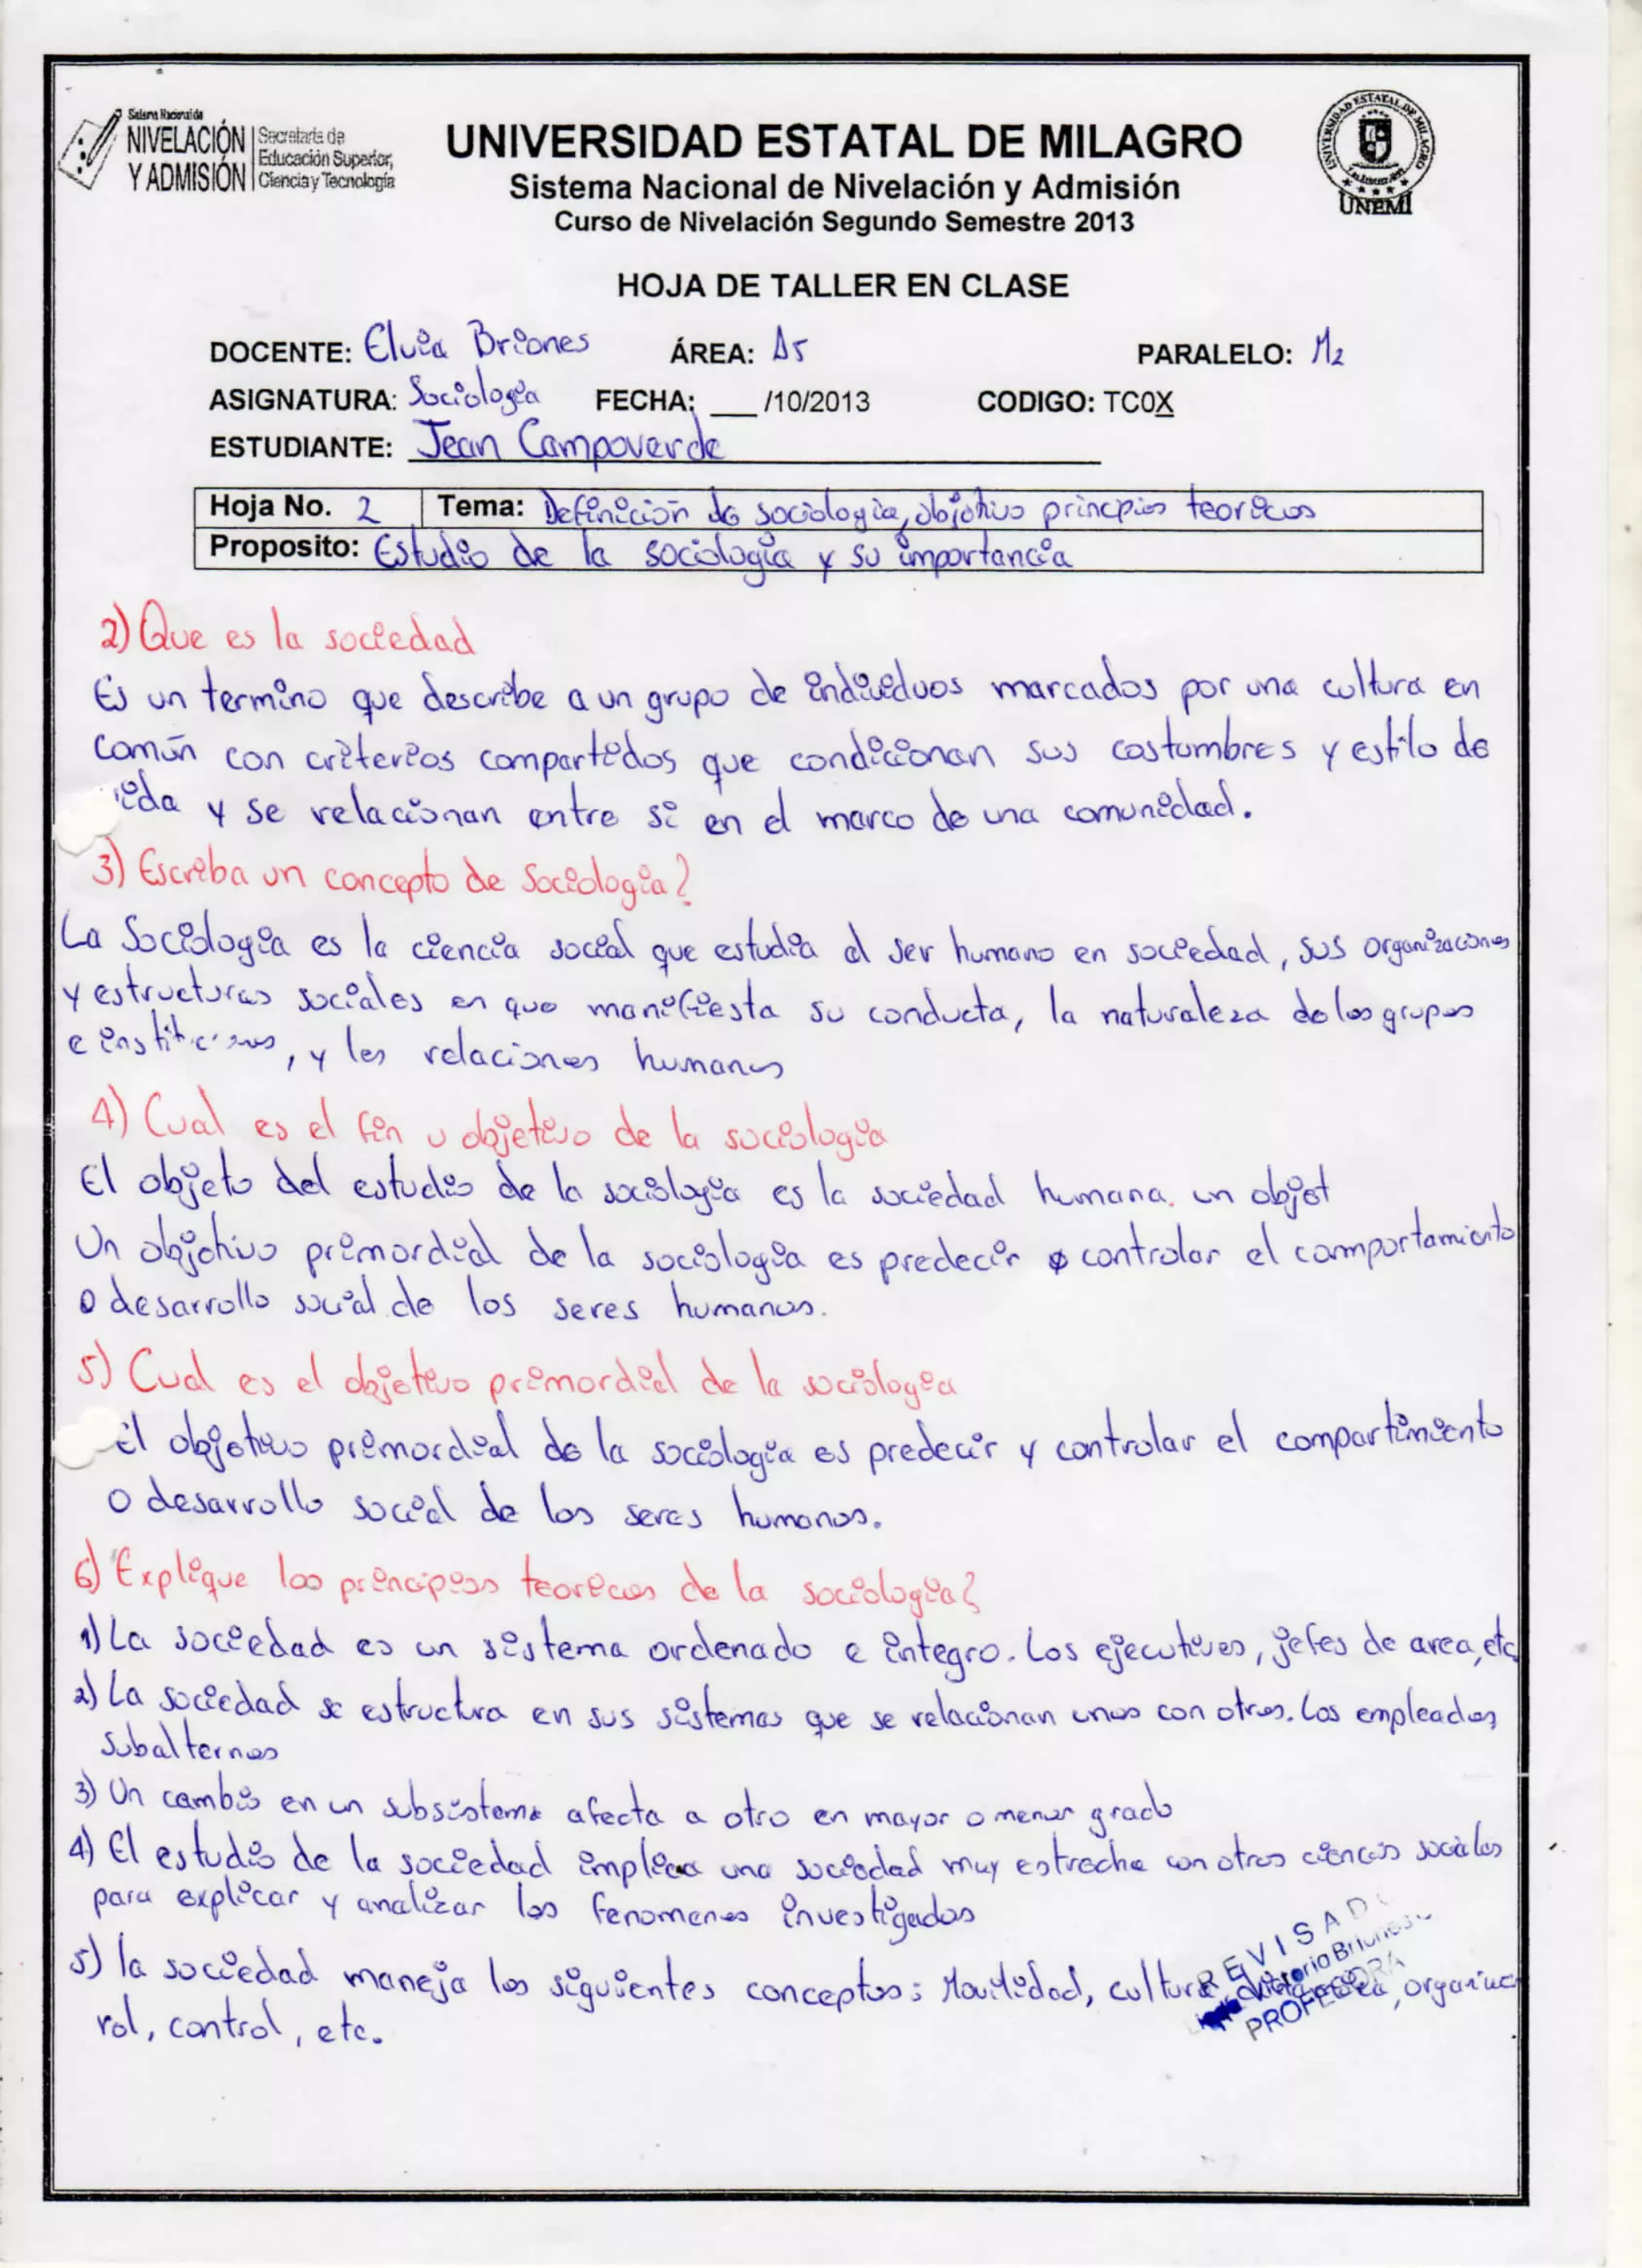 Sistema Nacional de
NIVELACIÓN
Y ADMISIÓN
Secretaría de
Educación Superior,
Ciencia y Tecnología
UNIVERSIDAD ESTATAL DE MILAGRO
Sistema Nacional de Nivelación y Admisión
Curso de Nivelación Segundo Semestre 2013
UNIVERSIDAD ESTATAL DE MILAGRO
UNEMI
HOJA DE TALLER EN CLASE
DOCENTE: Elvia Briones ÁREA: A5 PARALELO: M2
ASIGNATURA: Sociologia FECHA: ___ /10/2013 CODIGO: TC0X
ESTUDIANTE: Jean Campoverde
Hoja No. 2 Tema: Definición de sociologia, objetivo principios teoricos
Proposito: Estudio de la sociologia y su importancia
2) Que es la sociedad
Es un termino que describe a un grupo de individuos marcados por una cultura en
común con criterios compartidos que condicionan sus costumbres y estilo de
vida y se relacionan entre si en el marco de una comunidad.
3) Escriba un concepto de Sociologia?
La Sociologia es la ciencia social que estudia el ser humano en sociedad, sus organizaciones
y estructuras sociales en que manifiesta su conducta, la naturaleza de los grupos
e , y las relaciones humanas
4) Cual es el fin u objetivo de la sociologia
El objeto del estudio de la sociologia es la sociedad humana. un objet
Un objetivo primordial de la sociologia es predecir controlar el commportamiento
o desarrollo social de los seres humanos.
5) Cual es el objetivo primordial de la sociologia
El objetivo primordial de la sociologia es predecir y controlar el compartimiento
o desarrollo social de los seres humanos.
6) Explique los principios teoricos de la sociologia?
1) La sociedad es un sistema ordenado e integro. Los ejecutives, jefes de area, etc
2) La sociedad se estructura en sus sistemas que se relacionan unos con otros. Los empleados
subalternos
3) Un cambio en un subsistema afecta a otro en mayor o menor grado
4) El estudio de la sociedad implica una sociedad muy estrecha con otros ciencias sociales
para explicar y analizar los fenomenos investigados
5) la sociedad maneja los siguientes conceptos: Movilidad, cultura,
rol, control, etc.
REVISADO
PROFESORA